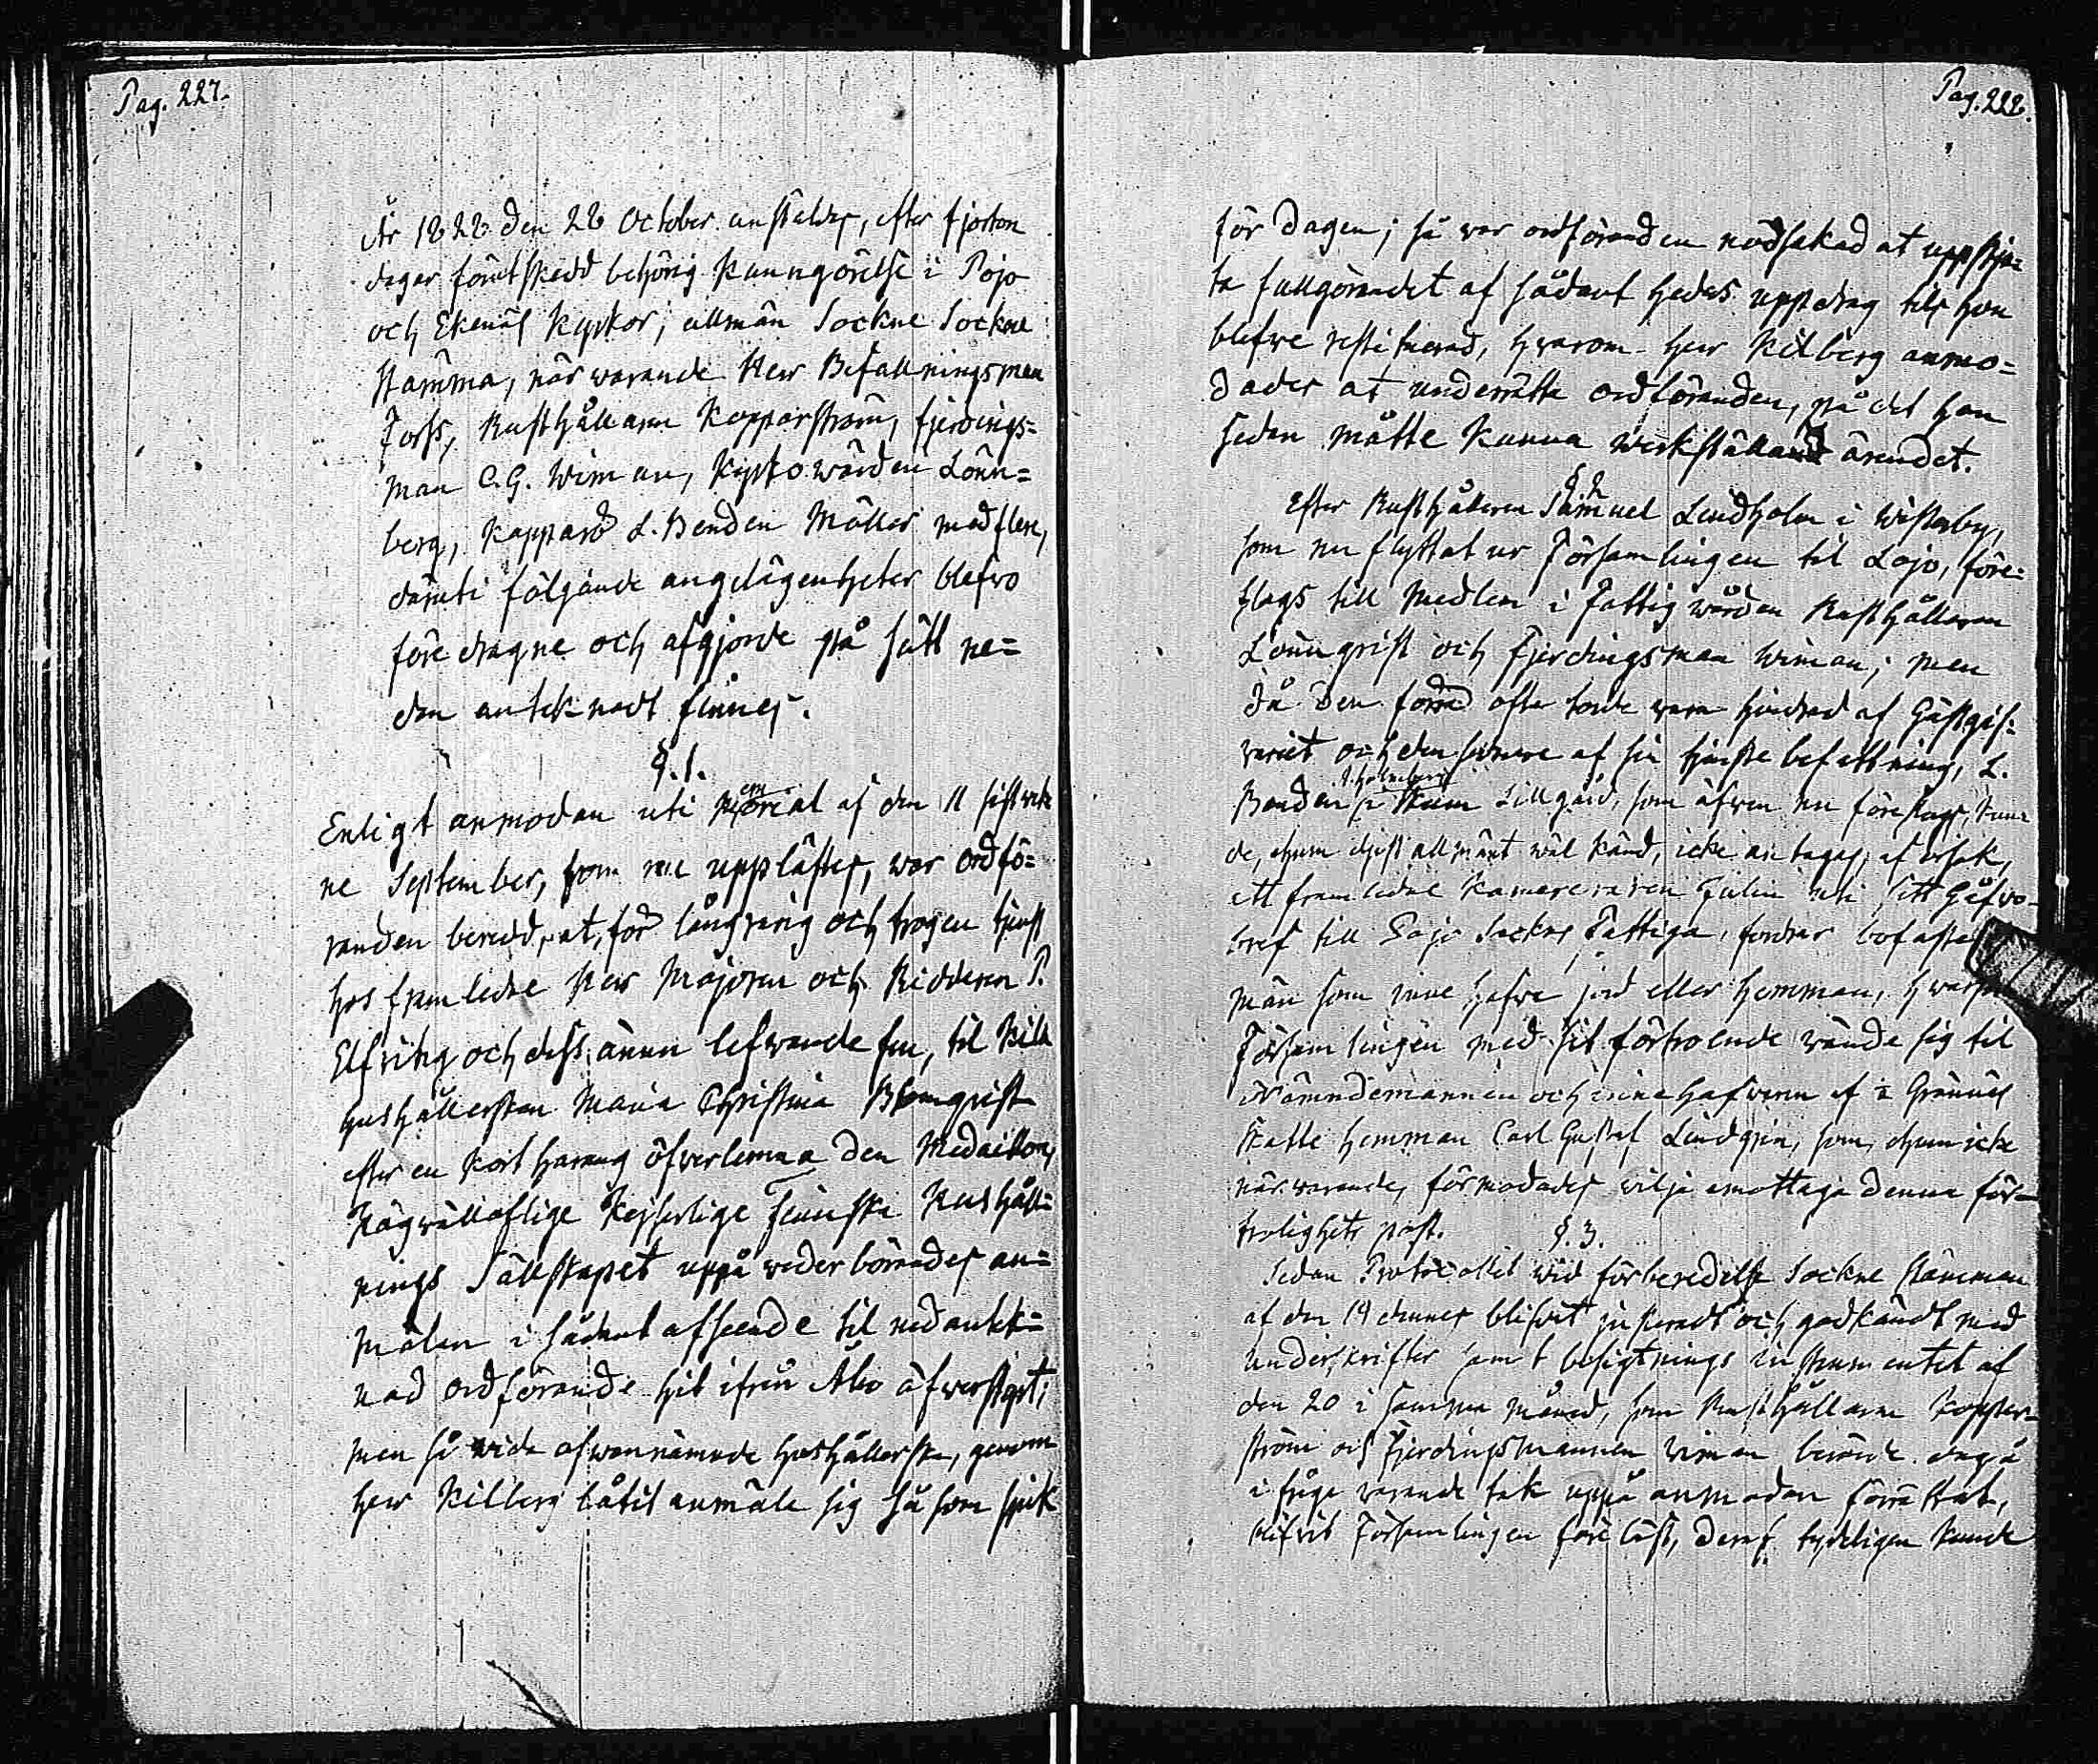 Pag. 227.
År 1828 den 28 October anstaldes, efter fjorton
dagar förutskedd behörig kungörelse i Pojo
och Ekenäs Kyrkor, allmän Sockne Sockne
stämma, närwarande Herr Befallningsman
Forss, Rusthållaren Kopparström, fjerdings=
man C.G. Wiman, Kyrkowärden Lönn=
berg, L. Bonden Möller med flere,
däruti följande angelägenheter blefwo
föredragne och afgjorde på sätt ne=
dan antecknadt finnes.
§.1.
Enligt anmodan uti Memorial af den 11 sistwek
ne September, som nu upplästes, war ordfö=
randen beredd, at, för långvarig och trogen tjenst
hos framledne Herr Majoren och Ridderen P.
Elfving och dess ännu lefwande fru, til
hushållerskan Maria Christina Blomqvist
efter en kort harang öfverlemna den Medaillon,
Högvälloflige Kejserlige Finska Hushåll=
nings Sällskapet uppå wederbörandes an=
mälan i sådant afseende til nedanteck=
nad ordförande hit ifrån Åbo öfwersändt;
men så wida ofwannämnde hushållerska, genom
herr Kilberg låtit anmäla sig såsom sjuk
Pag. 228.
för dagen; så war ordföranden nödsakad at uppskju=
ta fullgörandet af sådant heders uppdrag tils hon
blefwe restituerad, hwarom herr Kilberg anmo=
dades at underrätta ordföranden, på det han
sedan måtte kunna werkställa ärendet.
§ 2
Efter Rusthållaren Samuel Lindholm i Westerby,
som nu flyttat ur Församlingen til Lojo, före=
slogs till Medlem i Fattigwården Rusthållaren
Lönnqvist och Fjerdingsman Wiman; men
då den förra ofta torde wara hindrad af Gästgif=
veriet och den senare af sin tjenste befattning, L.
Bonden J. Holmberg i Lillgård, som äfwen nu föreslogs, kun=
de, ehuru eljest allmänt wäl känd, icke antagas, af orsak,
att framledne Kamereraren Julin uti sitt Gåfwo=
bref till Pojo Socknes Fattiga, fordrar bofasta
män som inne hafwa jord eller hemman, hwarföre
Församlingen med sit förtroende wände sig til
Nämndemannen och innehafwaren af Grännäs
Skatte hemman Carl Gustaf Lindgren, som, ehuru icke
närwarande, förmodades wilja emottaga denna för=
trolighets post.
§.3.
Sedan Protocollet wid förberedelse Sockne stämman
af den 19 dennes blifvit justeradt och godkändt med
underskrifter samt besigtnings instrumentet af
den 20 i samma månad, som Rusthållaren Koppar=
ström och Fjerdingsmannen Wiman
i fråga warande tak uppå anmodan förrättat,
blifvit Församlingen föreläst, deraf tydeligen kunde